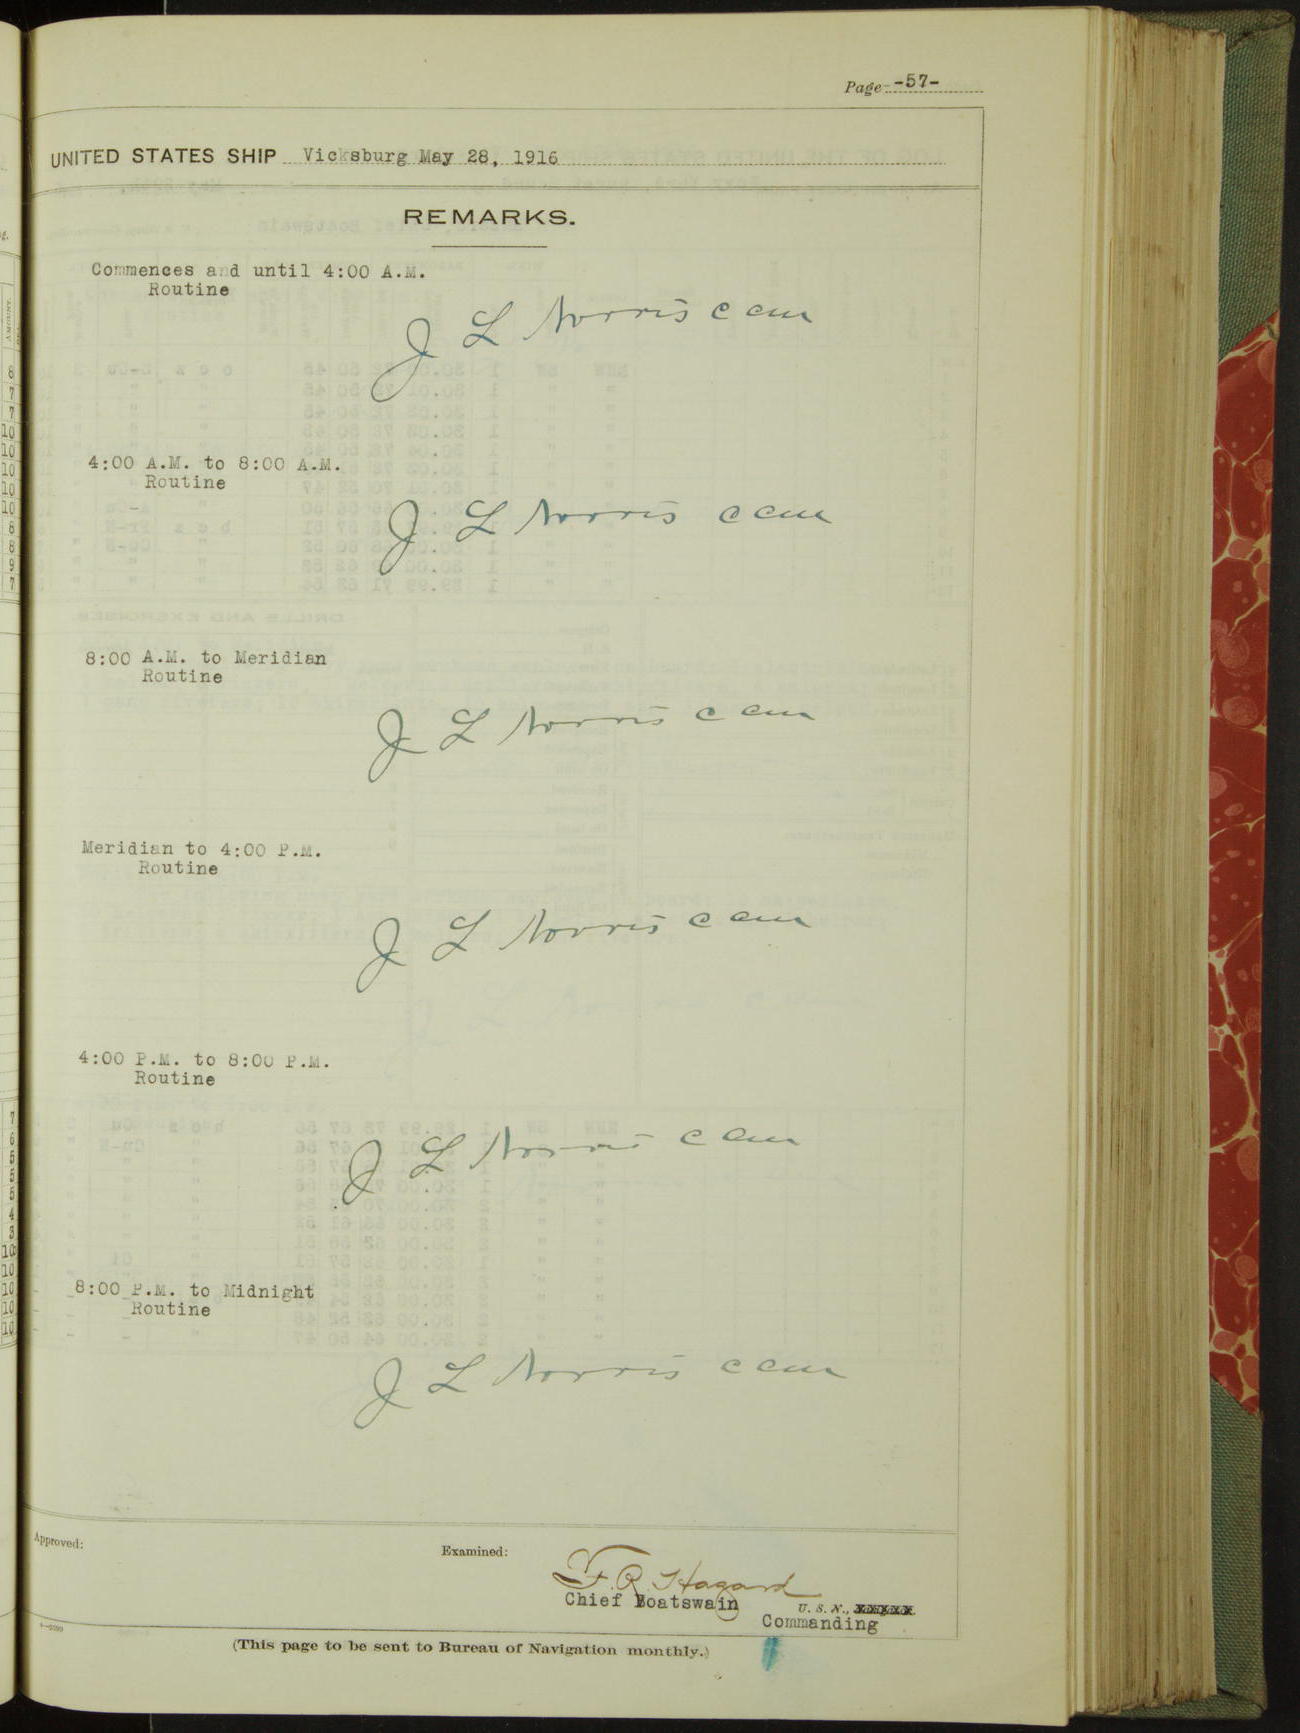 Page -57-
UNITED STATES SHIP Vicksburg May 28, 1916
REMARKS.
Commences and until 4:00 A.M.
Routine
J L Norris C C M
4:00 A.M. to 8:00 A.M.
Routine
J L Norris C C M
8:00 A.M. to Meridian
Routine
J L Norris C C M
Meridian to 4:00 P.M.
Routine
J L Norris C C M
4:00 P.M. to 8:00 P.M.
Routine
J L Norris C C M
8:00 P.M. to Midnight
Routine
J L Norris C C M
Approved:
Examined:
F. R. Hazard
Chief Boatswain U. S. N.,
Commanding
(This page to be sent to Bureau of Navigation monthly.)